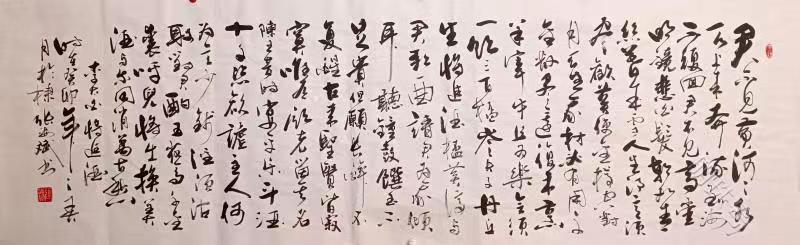 君不見黃河之水
天上來奔流到海
不復回君不見高堂
明鏡悲白髮朝如青
絲暮成雪人生得意須
盡歡莫使金樽空對
月天生我材必有用千
金散盡還復來烹
羊宰牛且為樂會須
一飲三百杯岑夫子丹丘
生將進酒杯莫停與
君歌一曲請君為我傾
耳聽鐘鼓饌玉不
足貴但願長醉不
復醒古來聖賢皆寂
寞唯有飲者留其名
陳王昔時宴平樂斗酒
十千恣歡謔主人何
為言少錢徑須沽
取對君酌五花馬千金
裘呼兒將出換美
酒與爾同消萬古愁
李白將進酒
時在癸卯年之春
月於棣